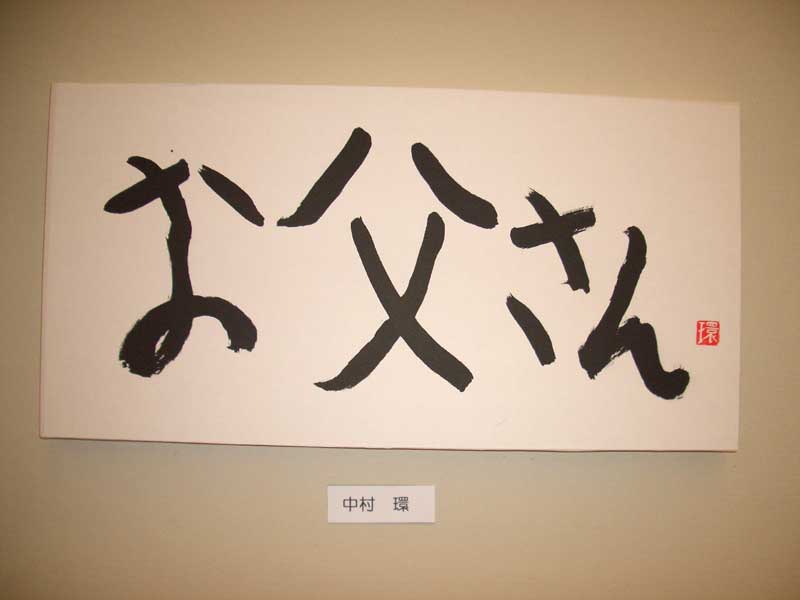 お父さん
環
中村　環